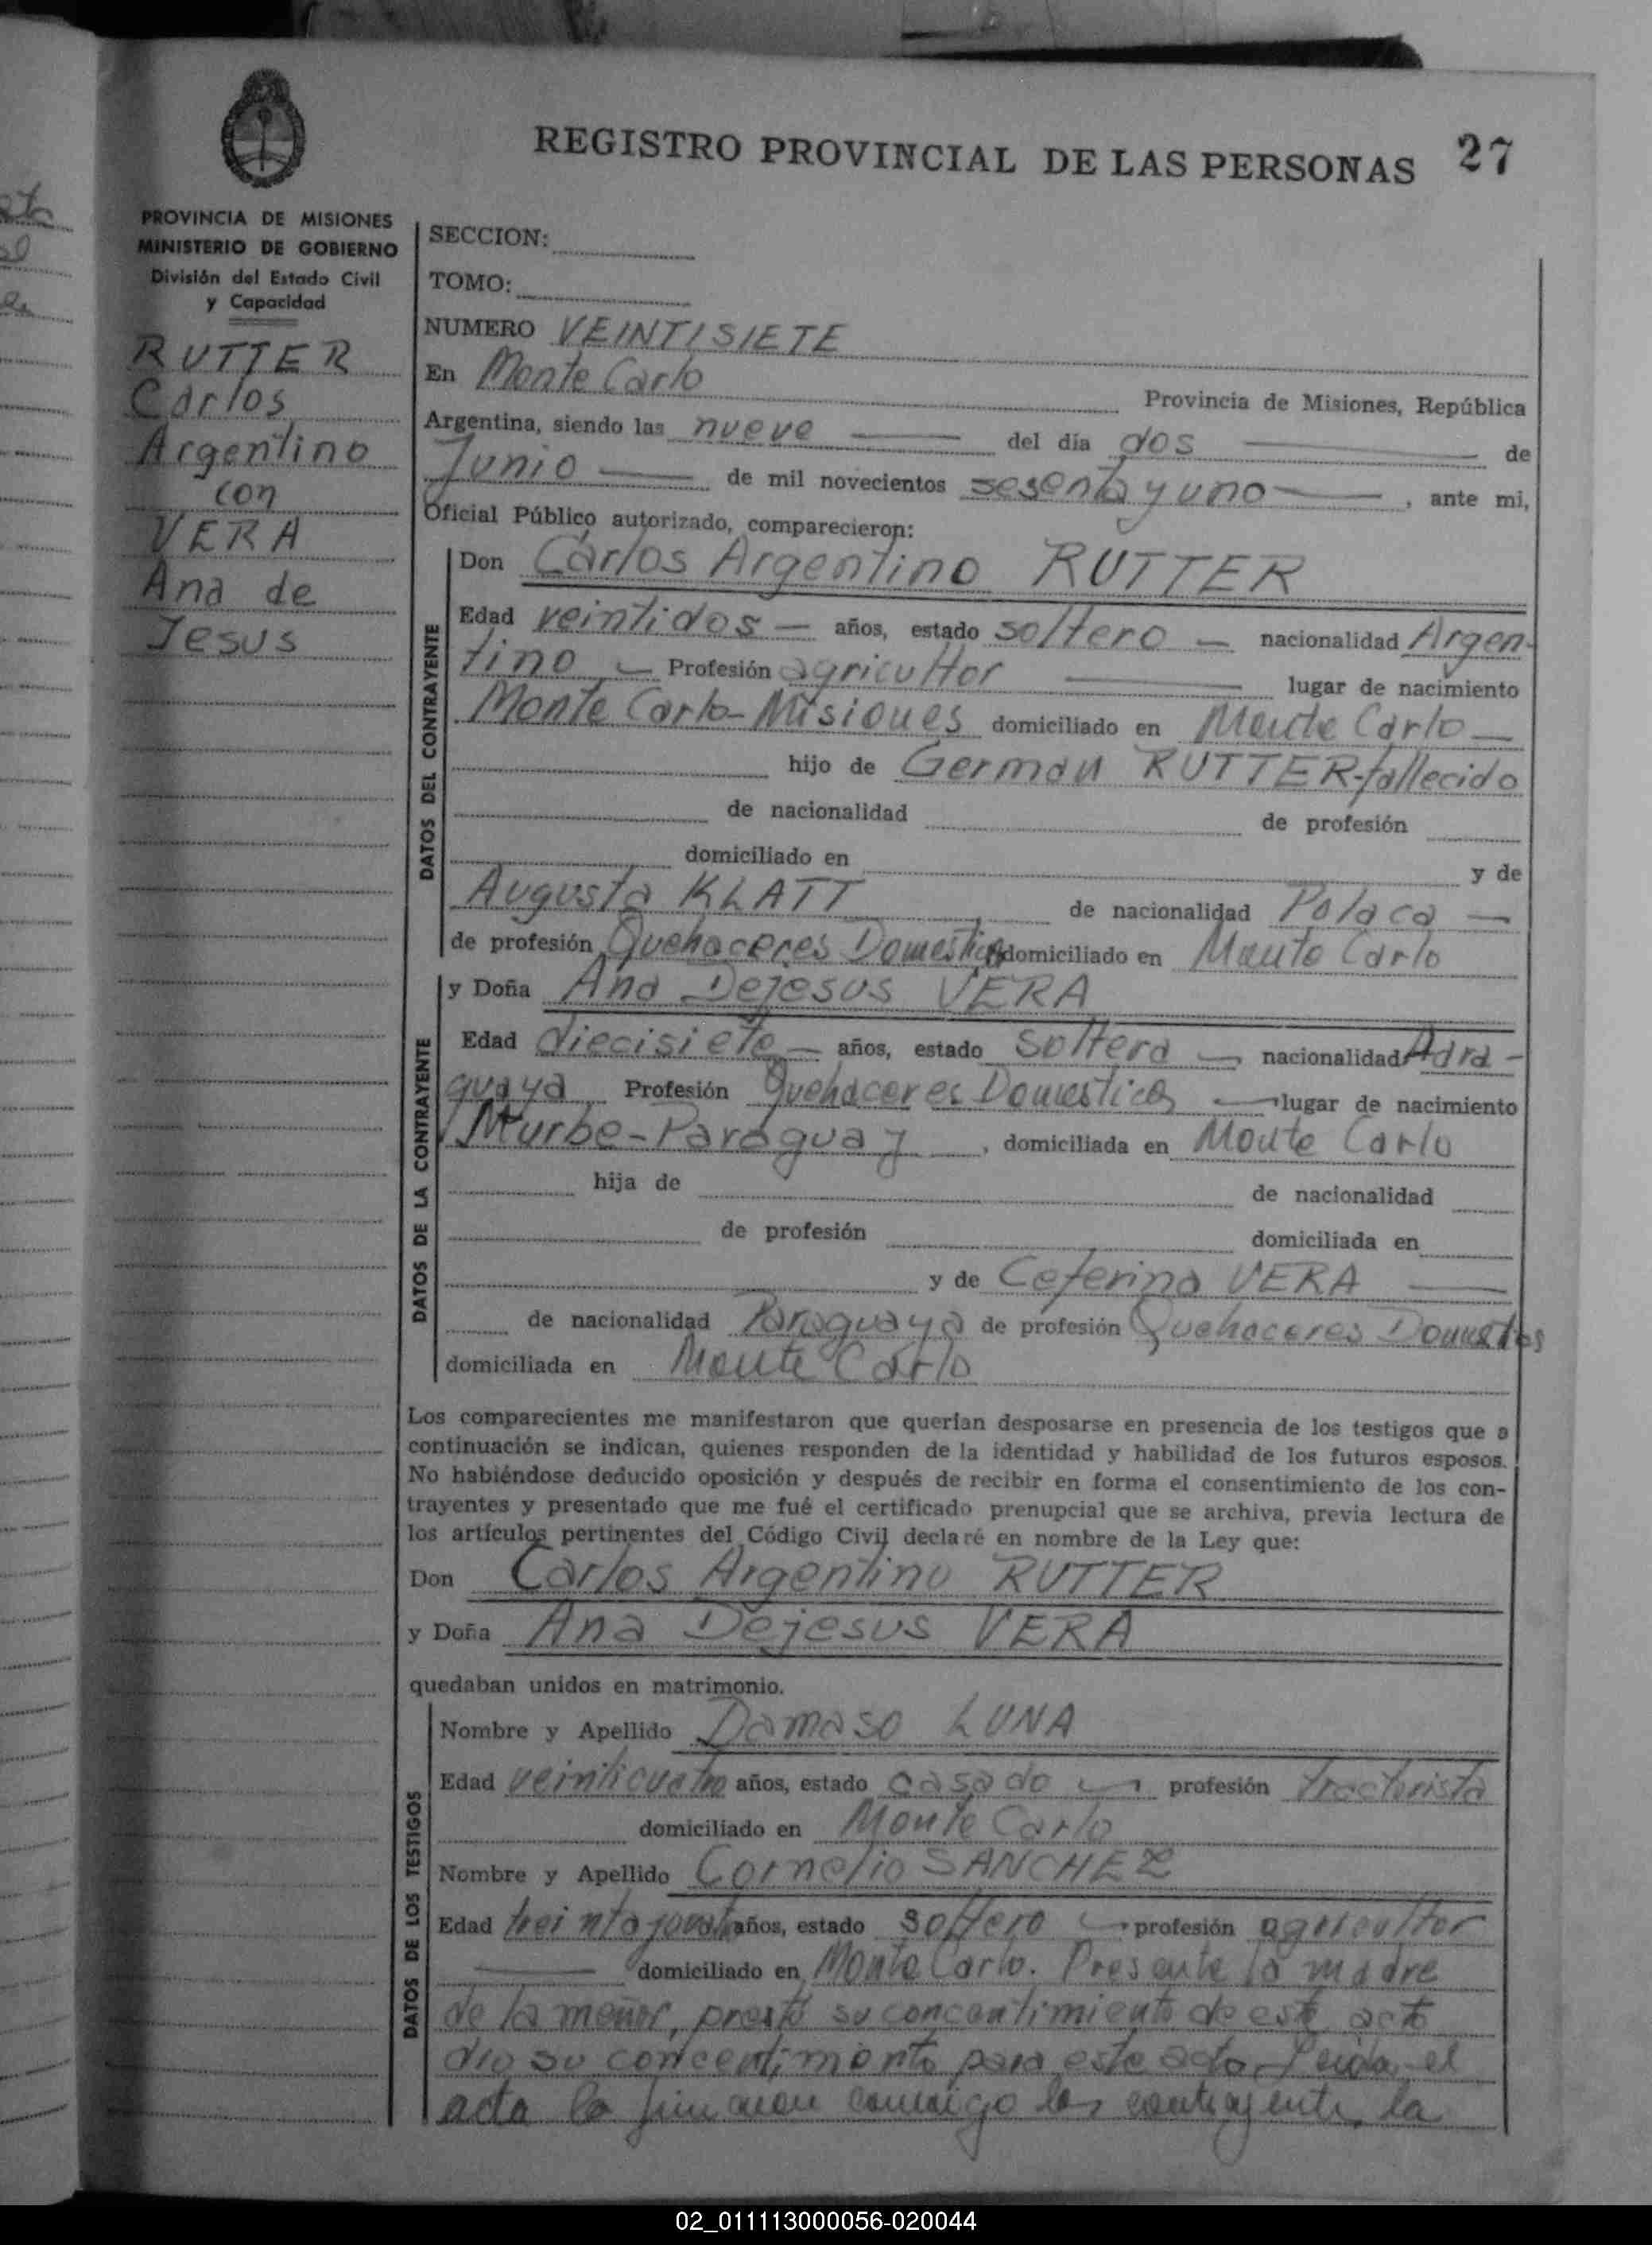 REGISTRO PROVINCIAL DE LAS PERSONAS 27
PROVINCIA DE MISIONES
MINISTERIO DE GOBIERNO
División del Estado Civil
y Capacidad
RUTTER
Carlos
Argentino
con
VERA
Ana de
Jesus
SECCION:
TOMO:
NUMERO VEINTISIETE
En Monte Carlo Provincia de Misiones, República
Argentina, siendo las nueve del día dos de
Junio de mil novecientos sesenta y uno, ante mi,
Oficial Público autorizado, comparecieron:
DATOS DEL CONTRAYENTE
Don Carlos Argentino RUTTER
Edad veintidos años, estado soltero nacionalidad Argen-
tino Profesión agricultor lugar de nacimiento
Monte Carlo-Misiones domiciliado en Monte Carlo
hijo de German RUTTER-fallecido
de nacionalidad de profesión
domiciliado en y de
Augusta KLATT de nacionalidad Polaca
de profesión Quehaceres Domesticos domiciliado en Monte Carlo
DATOS DE LA CONTRAYENTE
y Doña Ana Dejesus VERA
Edad diecisiete años, estado soltera nacionalidad
guaya Profesión Quehaceres Domesticos lugar de nacimiento
Paraguay, domiciliada en Monte Carlo
hija de de nacionalidad
de profesión domiciliada en
y de Ceferina VERA
de nacionalidad Paraguaya de profesión Quehaceres
domiciliada en Monte Carlo
Los comparecientes me manifestaron que querían desposarse en presencia de los testigos que a
continuación se indican, quienes responden de la identidad y habilidad de los futuros esposos.
No habiéndose deducido oposición y después de recibir en forma el consentimiento de los con-
trayentes y presentado que me fué el certificado prenupcial que se archiva, previa lectura de
los artículos pertinentes del Código Civil declaré en nombre de la Ley que:
Don Carlos Argentino RUTTER
y Doña Ana Dejesus VERA
quedaban unidos en matrimonio.
DATOS DE LOS TESTIGOS
Nombre y Apellido Damaso LUNA
Edad veinticuatro años, estado casado profesión tractorista
domiciliado en Monte Carlo
Nombre y Apellido Cornelio SANCHEZ
Edad años, estado soltero profesión agricultor
domiciliado en Monte Carlo. Presente la madre
de la menor, prestó su concentimiento de este acto
dio su concentimiento para este acto. Leida el
acta la firmaron conmigo los contrayentes, la
02_011113000056-020044